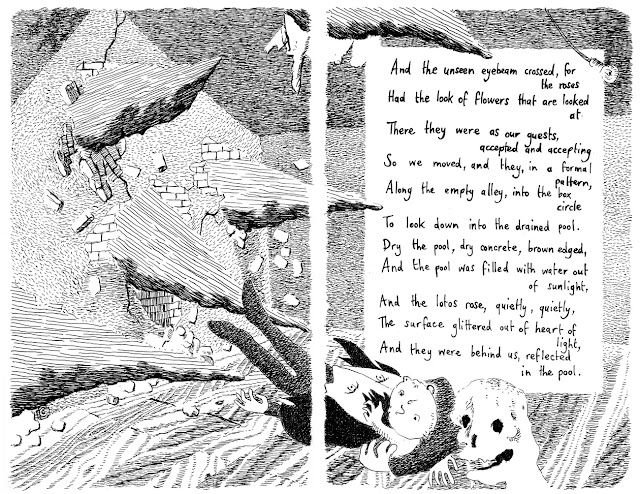 And the unseen eyebeam crossed, for
the roses
Had the look of flowers that are looked
at
There they were as our guests,
accepted and accepting
So we moved, and they, in a formal
pattern,
Along the empty alley, into the box
circle
To look down into the drained pool.
Dry the pool, dry concrete, brown edged,
And the pool was filled with water out
of sunlight,
And the lotos rose, quietly, quietly,
The surface glittered out of heart of
light,
And they were behind us, reflected
in the pool.